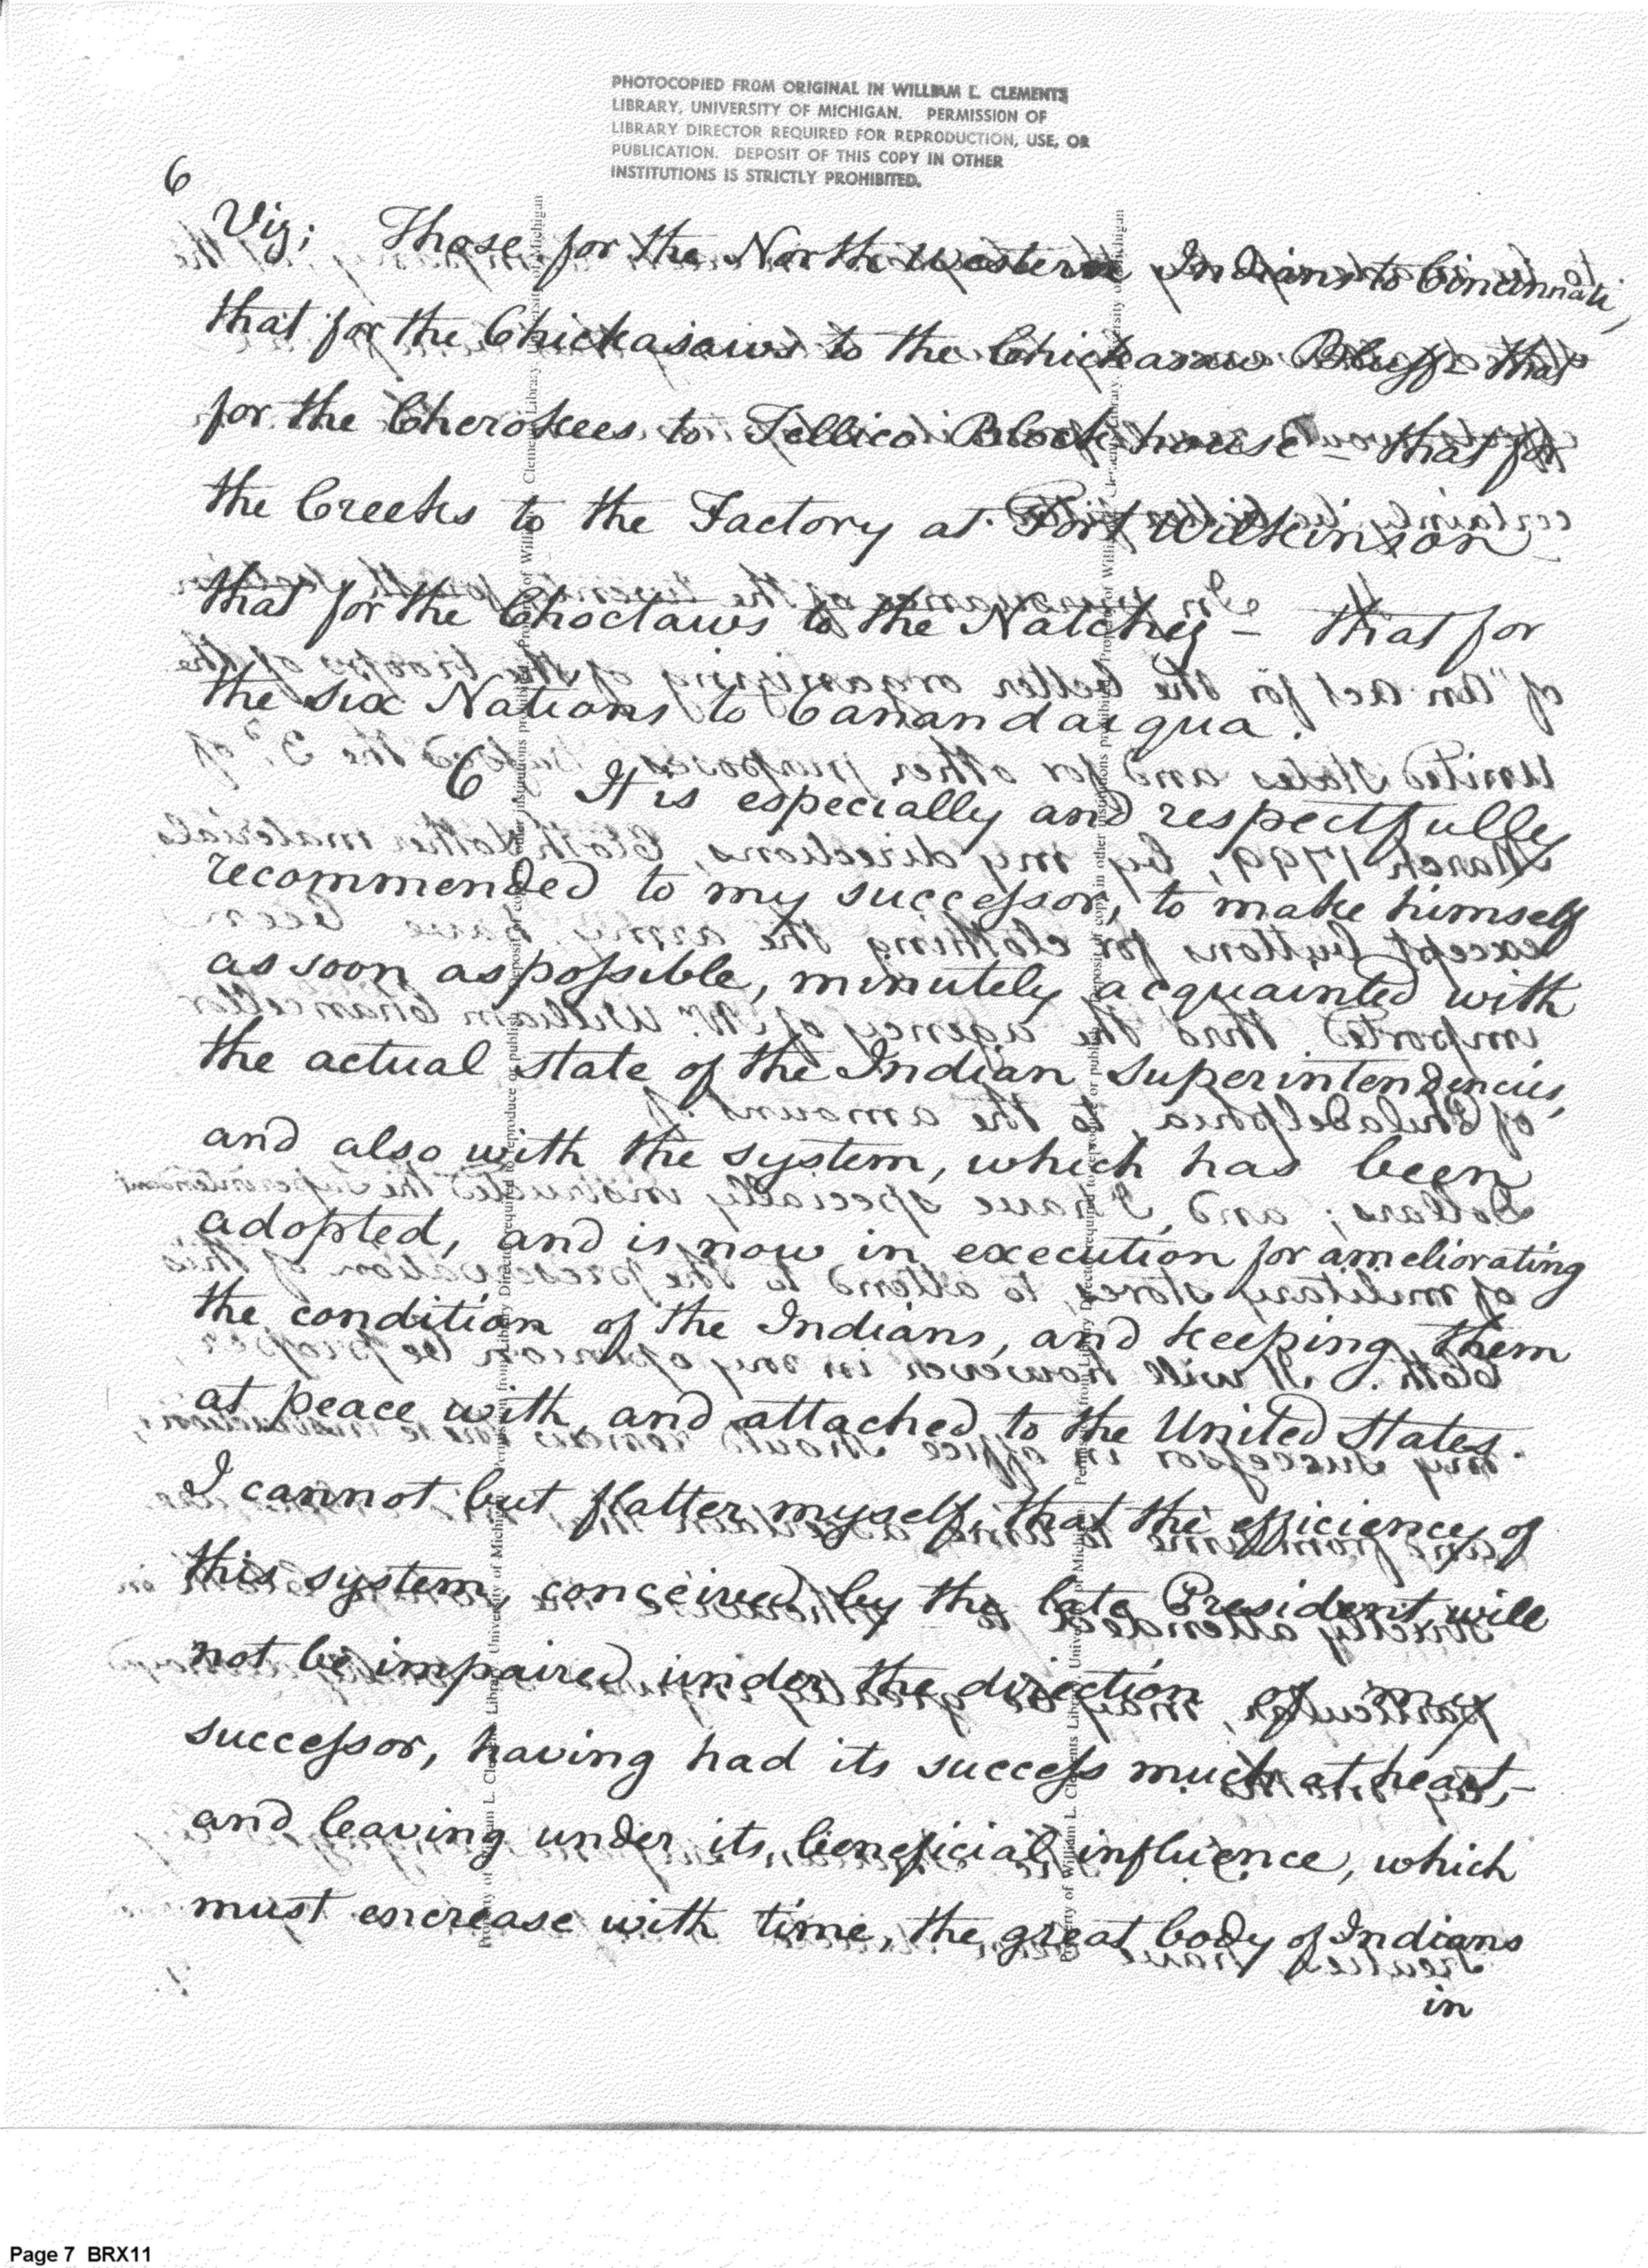 PHOTOCOPIED FROM ORIGINAL IN WILLIAM L. CLEMENTS
LIBRARY, UNIVERSITY OF MICHIGAN. PERMISSION OF
LIBRARY DIRECTOR REQUIRED FOR REPRODUCTION, USE, OR
PUBLICATION. DEPOSIT OF THIS COPY IN OTHER
INSTITUTIONS IS STRICTLY PROHIBITED.
6
Viz; Those for the North Western Indians to Cincinnati,
that for the Chickasaws to the Chickasaw Bluffs that
for the Cherokees to Tellico Block house – that for
the Creeks to the Factory at Fort Wilkinson
that for the Choctaws to the Natchez – that for
the six Nations to Canandaiqua.
6 It is especially and respectfully
recommended to my successor, to make himself
as soon as possible, minutely acquainted with
the actual state of the Indian superintendencies,
and also with the system, which has been
adopted, and is now in execution for ameliorating
the condition of the Indians, and keeping them
at peace with, and attached to the United States.
I cannot but flatter myself, that the efficiency of
this system, conceived by the late President, will
not be impaired under the direction of my
successor, having had its success much at heart,–
and leaving under its beneficial influence, which
must encrease with time, the great body of Indians
in
Page 7 BRX11